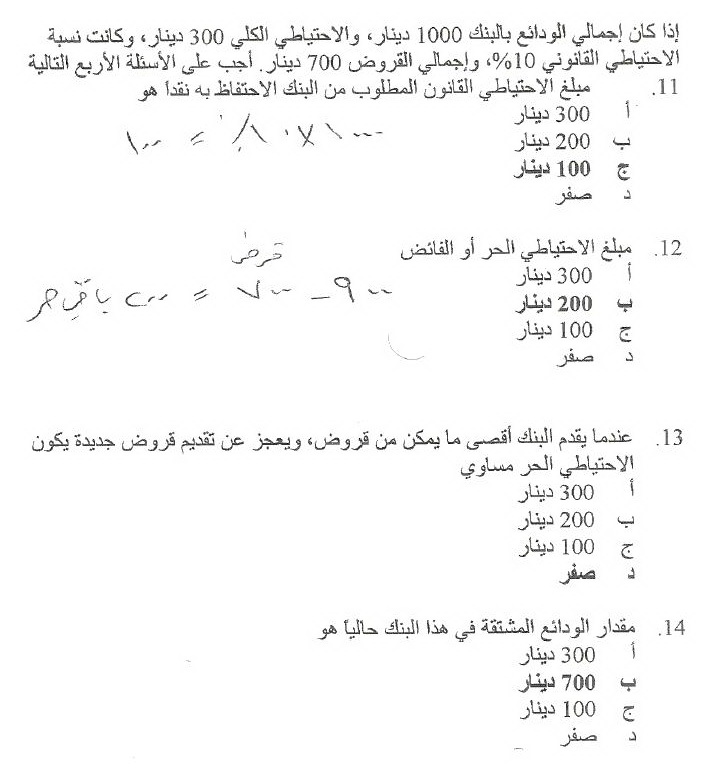 إذا كان إجمالي الودائع بالبنك 1000 دينار، والاحتياطي الكلي 300 دينار، وكانت نسبة
الاحتياطي القانوني 10%، وإجمالي القروض 700 دينار. أجب على الأسئلة الأربع التالية
11. مبلغ الاحتياطي القانون المطلوب من البنك الاحتفاظ به نقداً هو
أ 300 دينار
ب 200 دينار
ج 100 دينار
د صفر
١٠٠٠ × ١٠٪ = ١٠٠
12. مبلغ الاحتياطي الحر أو الفائض
أ 300 دينار
ب 200 دينار
ج 100 دينار
د صفر
قرض
٩٠٠ - ٧٠٠ = ٢٠٠
13. عندما يقدم البنك أقصى ما يمكن من قروض، ويعجز عن تقديم قروض جديدة يكون
الاحتياطي الحر مساوي
أ 300 دينار
ب 200 دينار
ج 100 دينار
د صفر
14. مقدار الودائع المشتقة في هذا البنك حالياً هو
أ 300 دينار
ب 700 دينار
ج 100 دينار
د صفر